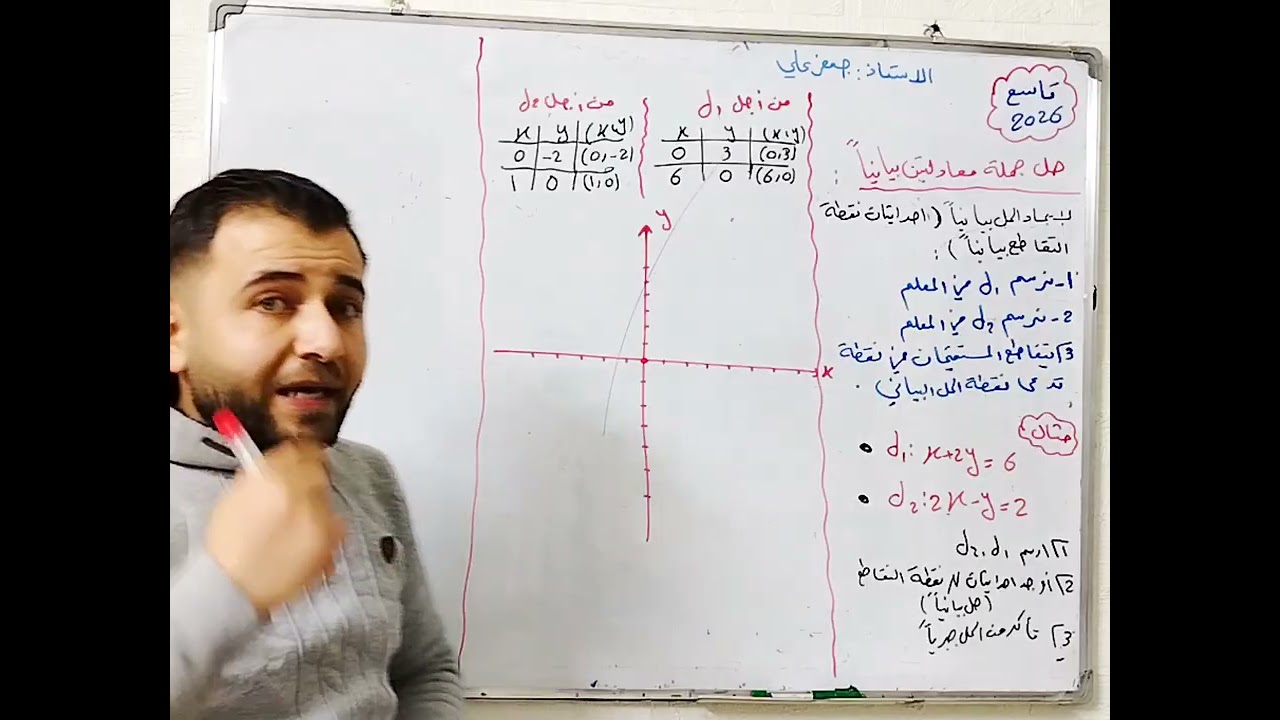 الاستاذ: جعفر علي
تاسع
2026
حل جملة معادلتين بيانياً:
لإيجاد الحل بيانياً (احداثيات نقطة
التقاطع بيانياً):
1- نرسم d₁ في المعلم
2- نرسم d₂ في المعلم
3] يتقاطع المستقيمان في نقطة
تدعى نقطة الحل البياني.
مثال:
• d₁: x+2y=6
• d₂: 2x-y=2
1] ارسم d₁، d₂
2] أوجد احداثيات N نقطة التقاطع
(حل بيانياً)
3] تأكد من الحل جبرياً
من أجل d₁
x y (x,y)
0 3 (0,3)
6 0 (6,0)
من أجل d₂
x y (x,y)
0 -2 (0,-2)
1 0 (1,0)
y
x